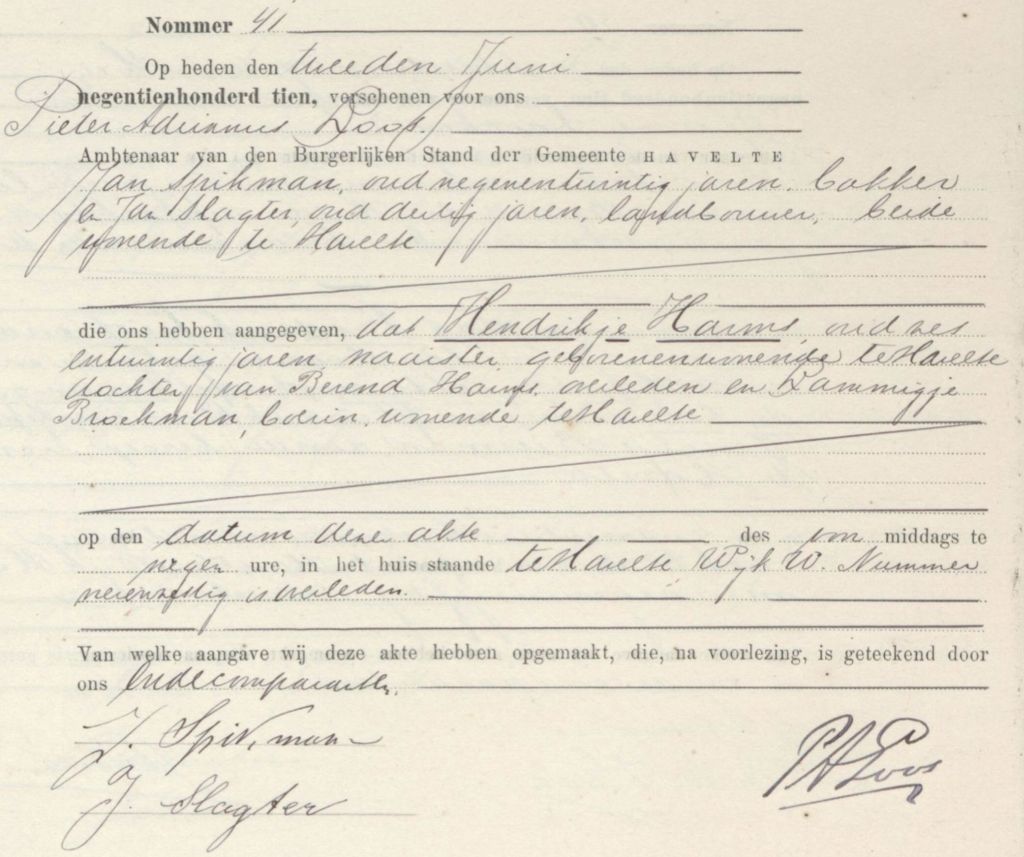 Nommer 41
Op heden den tweeden Juni
negentienhonderd tien, verschenen voor ons
Pieter Adrianus Loos.
Ambtenaar van den Burgerlijken Stand der Gemeente HAVELTE
Jan Spikman, oud negenentwintig jaren, bakker
en Jan Slagter, oud dertig jaren, landbouwer, beide
wonende te Havelte
die ons hebben aangegeven, dat Hendrikje Harms, oud zes
entwintig jaren, naaister, geboren en wonende te Havelte
dochter van Berend Harms, overleden en Lammigje
Broekman, boerin, wonende te Havelte
op den datum dezer akte des voor middags te
negen ure, in het huis staande te Havelte, Wijk W. Nummer
is overleden.
Van welke aangave wij deze akte hebben opgemaakt, die, na voorlezing, is geteekend door
ons en de comparanten.
J. Spikman
J. Slagter
PALoos